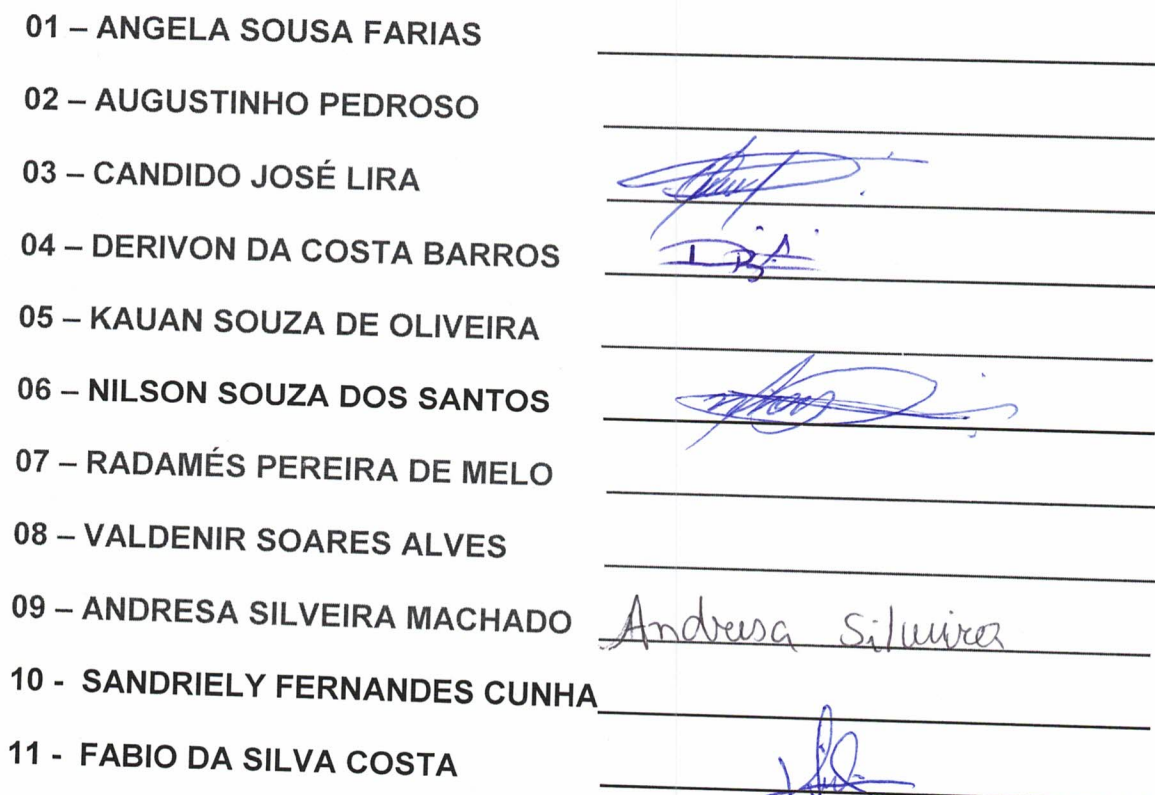 01 – ANGELA SOUSA FARIAS
02 – AUGUSTINHO PEDROSO
03 – CANDIDO JOSÉ LIRA
04 – DERIVON DA COSTA BARROS
05 – KAUAN SOUZA DE OLIVEIRA
06 – NILSON SOUZA DOS SANTOS
07 – RADAMÉS PEREIRA DE MELO
08 – VALDENIR SOARES ALVES
09 – ANDRESA SILVEIRA MACHADO Andresa Silveira
10 - SANDRIELY FERNANDES CUNHA
11 - FABIO DA SILVA COSTA